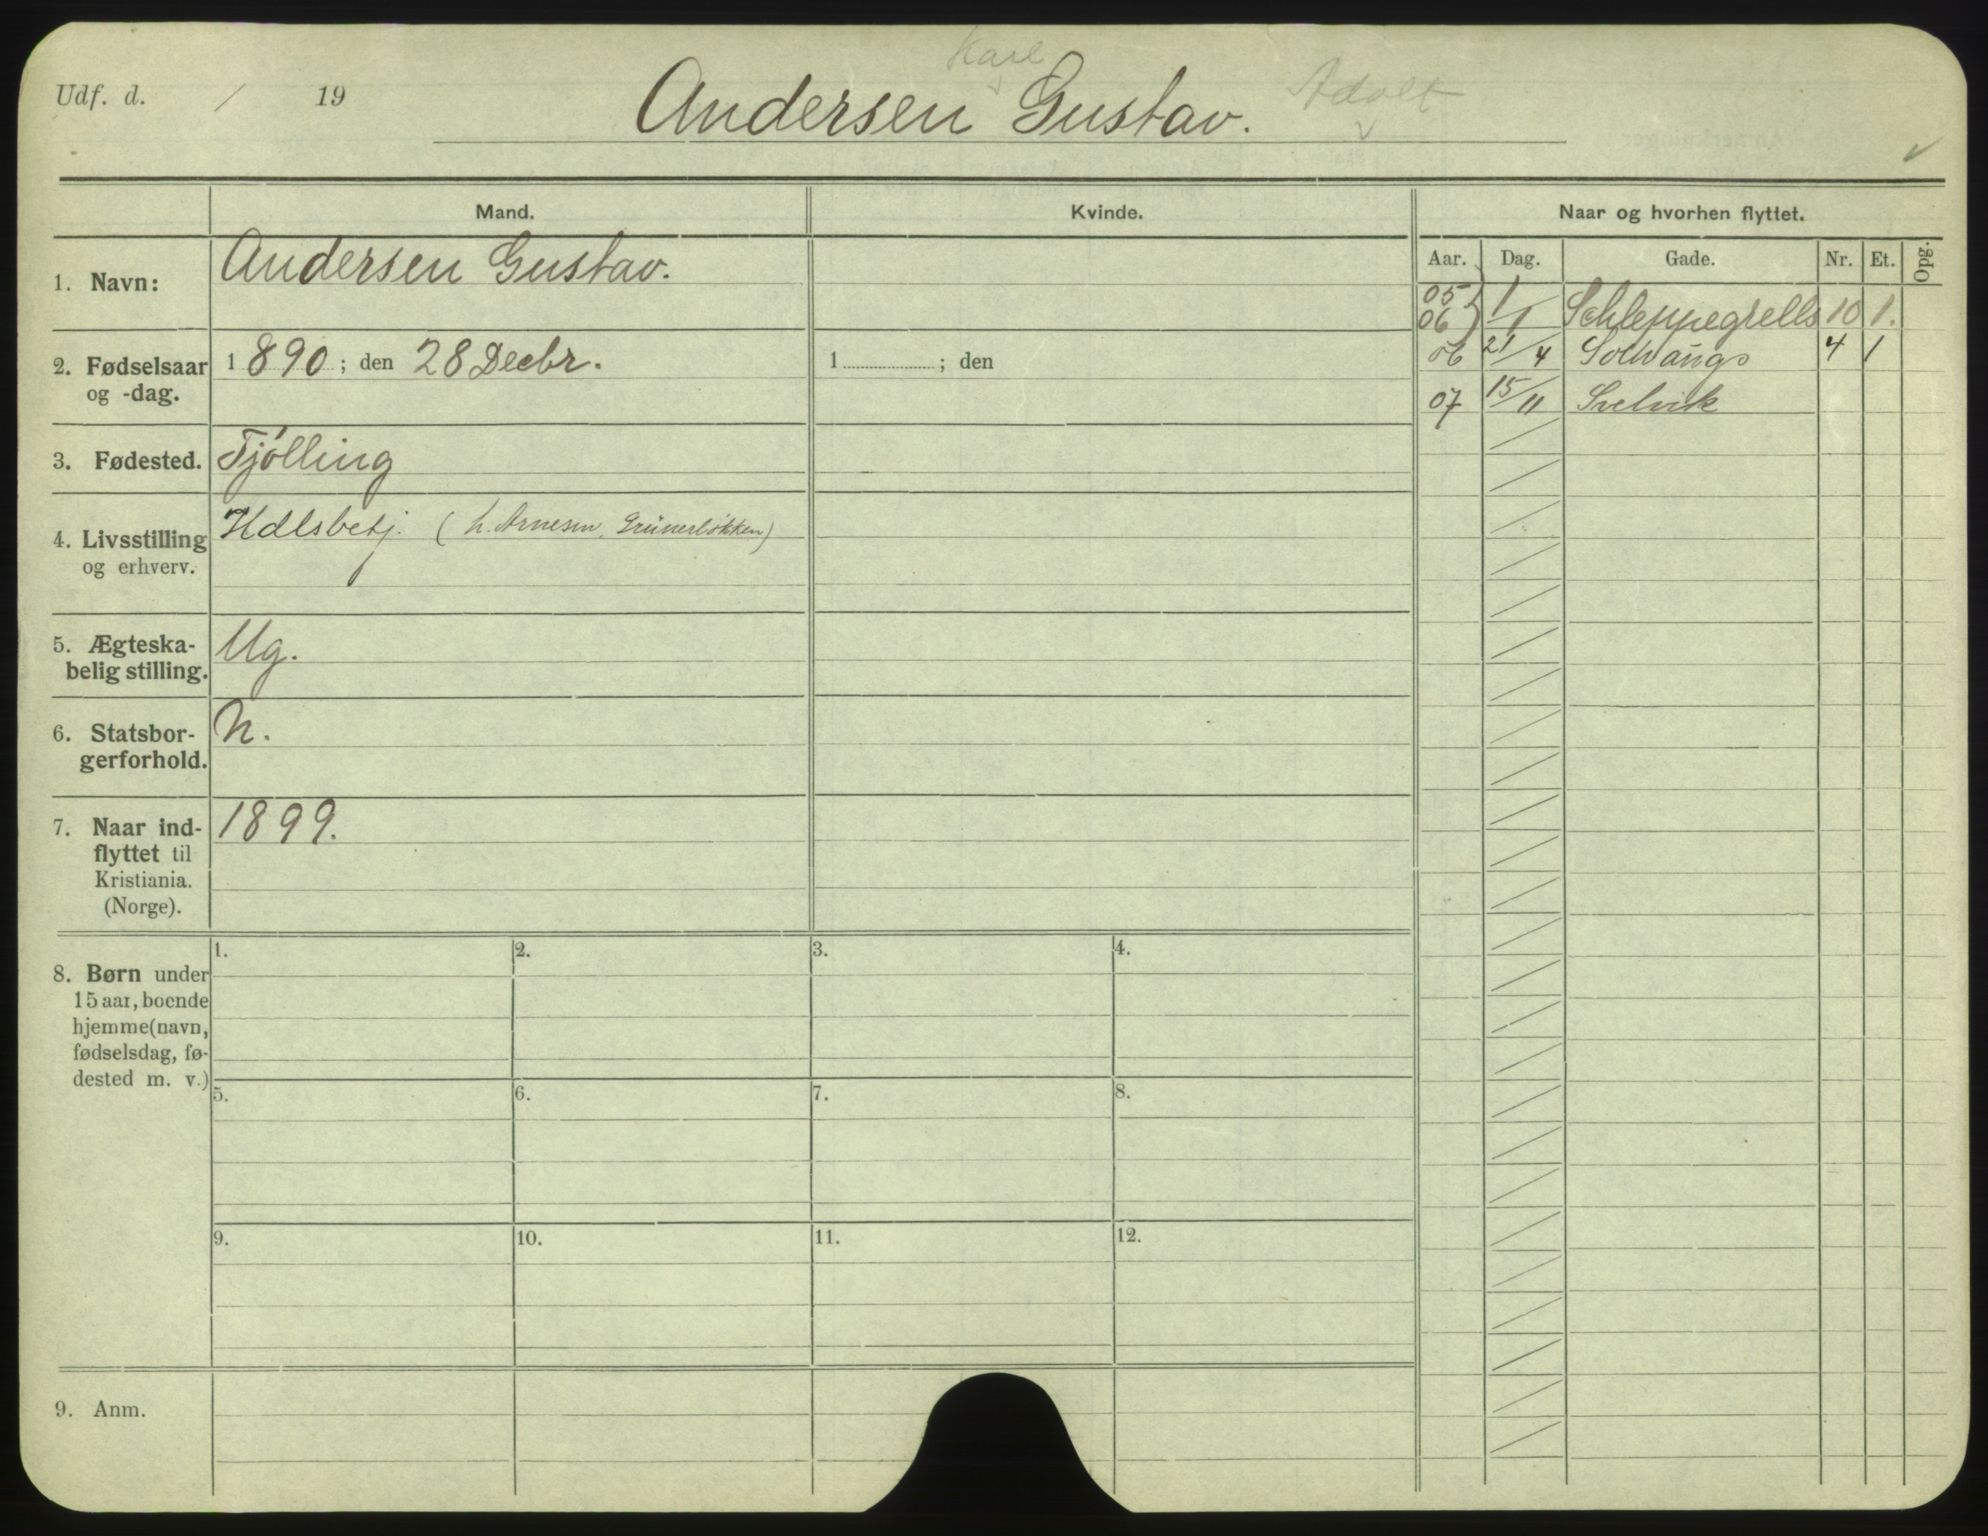 Karl
Udf. d. / 19 Andersen Gustav. Adolf
Mand. Kvinde. Naar og hvorhen flyttet.
Aar. Dag. Gade. Nr. Et. Opg.
1. Navn: Andersen Gustav.
05
06 1/1 Schleppegrells 10 1.
06 21/4 Solvangs 4 1
07 15/11 Svelvik
2. Fødselsaar
og -dag.
1890; den 28 Decbr.
1 ; den
3. Fødested. Tjølling
4. Livsstilling
og erhverv.
Hdlsbetj. (h. Arnesen, Grünerløkken)
5. Ægteska-
belig stilling.
Ug.
6. Statsbor-
gerforhold.
N.
7. Naar ind-
flyttet til
Kristiania.
(Norge).
1899.
8. Børn under
15 aar, boende
hjemme (navn,
fødselsdag, fø-
dested m. v.)
1. 2. 3. 4.
5. 6. 7. 8.
9. 10. 11. 12.
9. Anm.